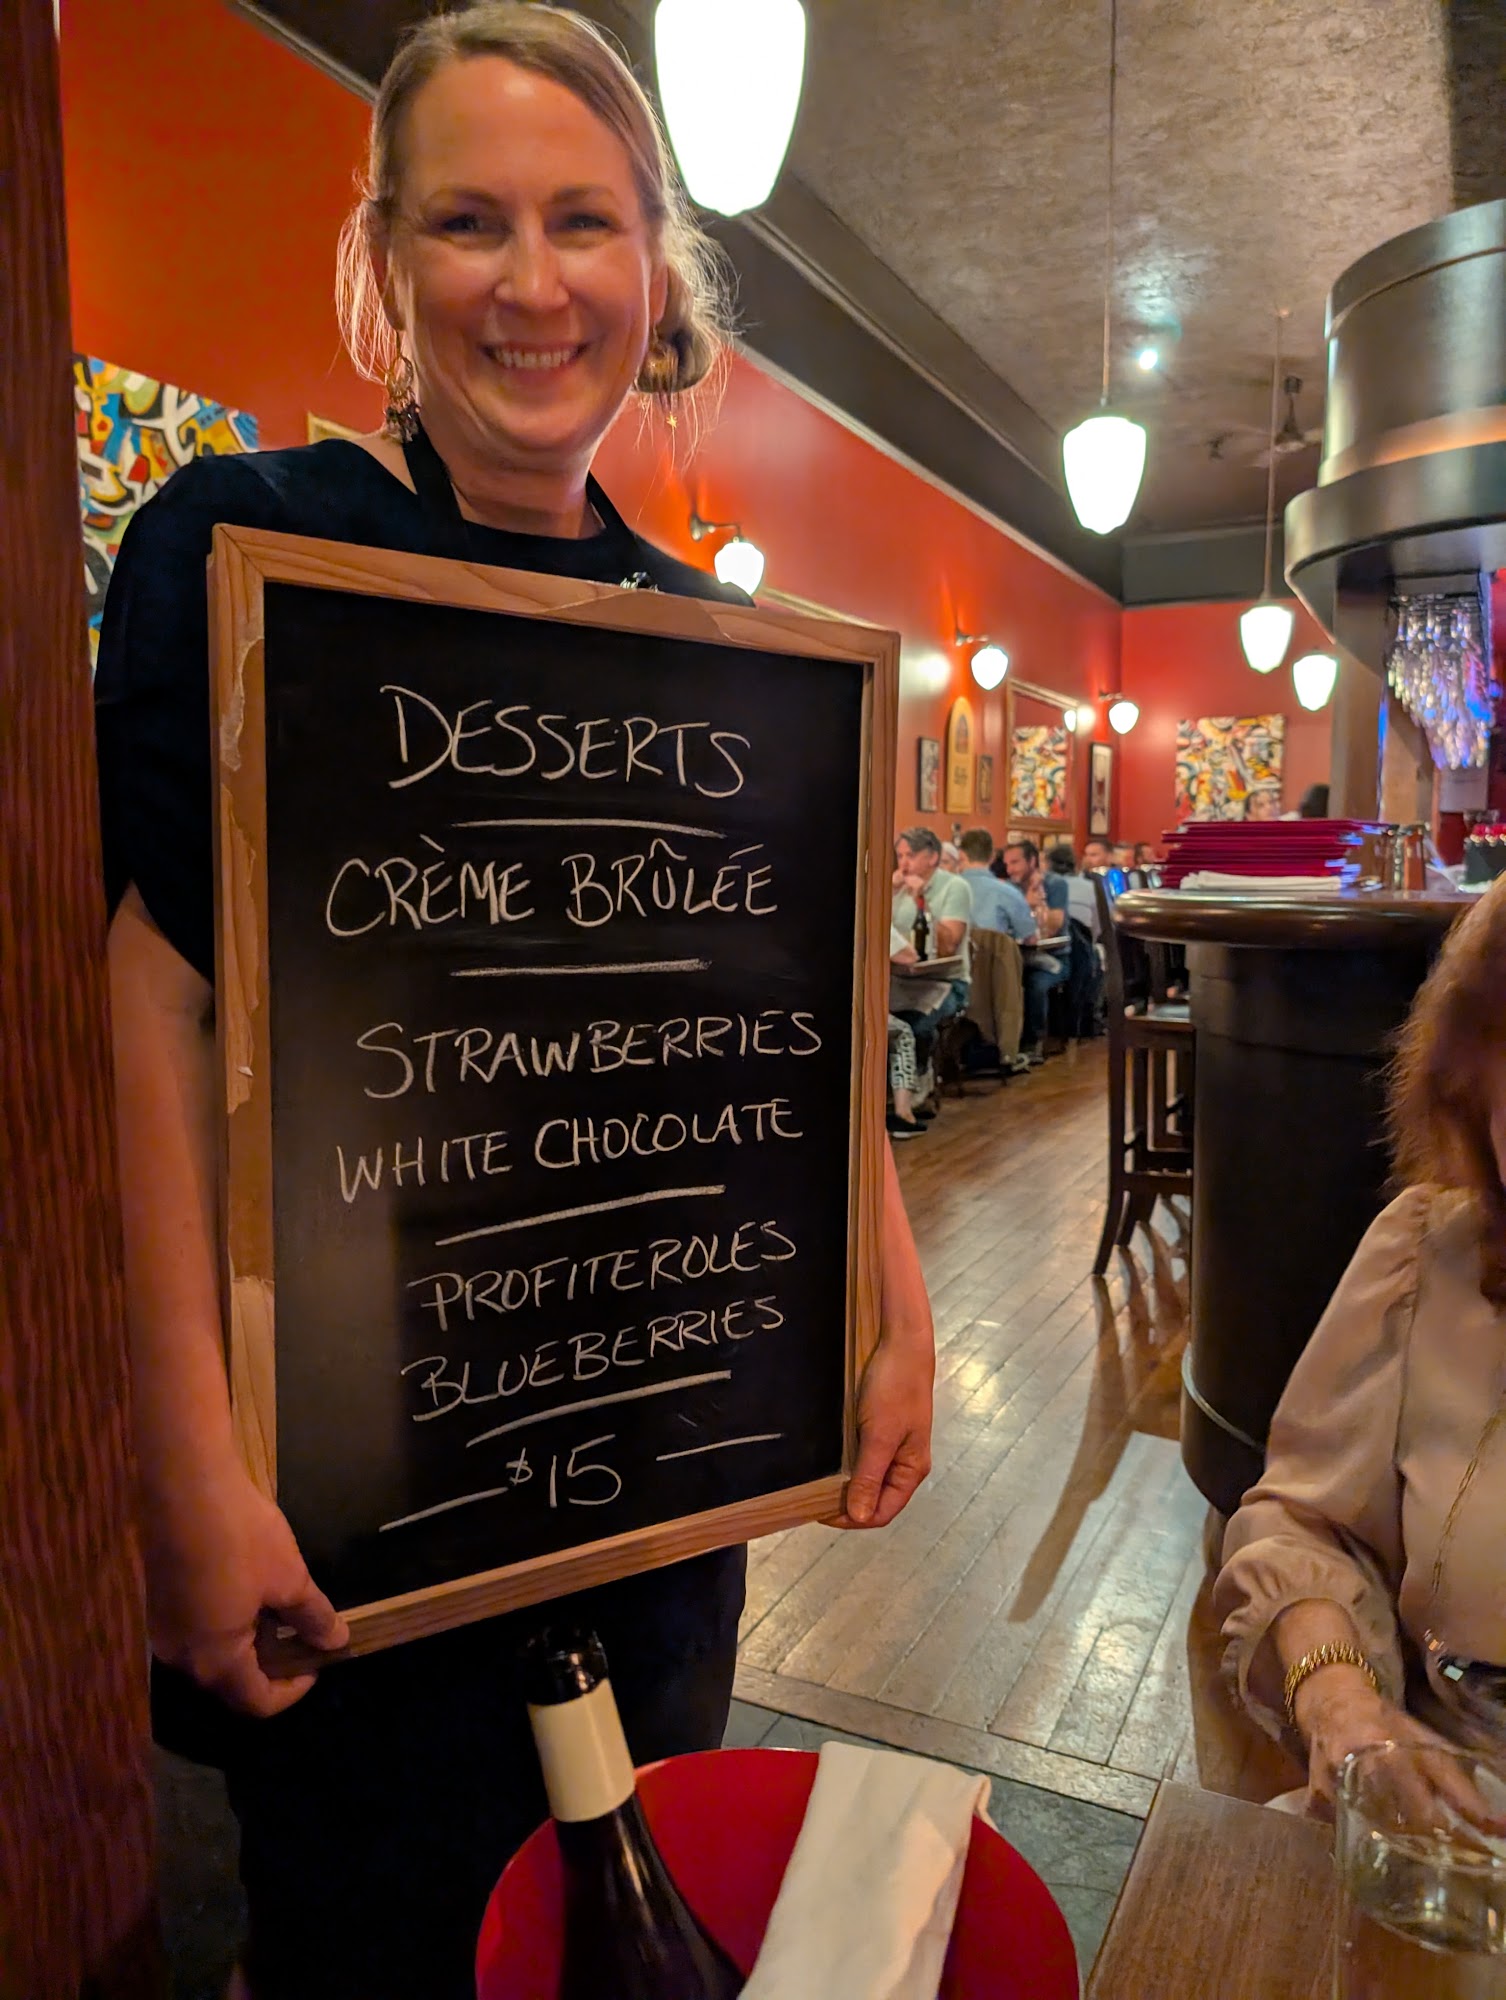 DESSERTS
CRÈME BRÛLÉE
STRAWBERRIES
WHITE CHOCOLATE
PROFITEROLES
BLUEBERRIES
$15